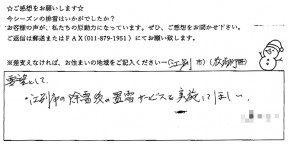 ☆ご感想をお願いします☆
今シーズンの排雪はいかがでしたか？
お客様の声が、私たちの原動力になっています。ぜひ、ご感想をお聞かせ下さい。
ご返信は郵送またはFAX(011-879-1951)にてお願い致します。
※差支えなければ、お住まいの地域をご記入ください→（江別 市）（
要望として、
・江別市の除雪後の置雪サービスを実施してほしい。